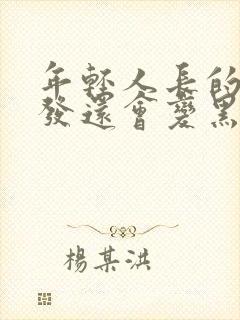 年輕人長的
發還會變黑
楊某洪